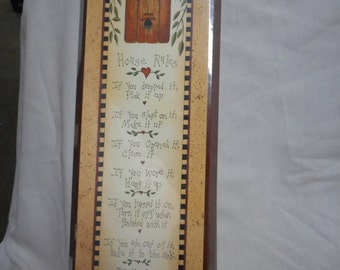 House Rules
If you dropped it,
Pick it up
If you slept on it,
Make it up
If you opened it,
Close it
If you wore it,
Hang it up
If you turned it on,
Turn it off when
finished with it
If you
take it to the